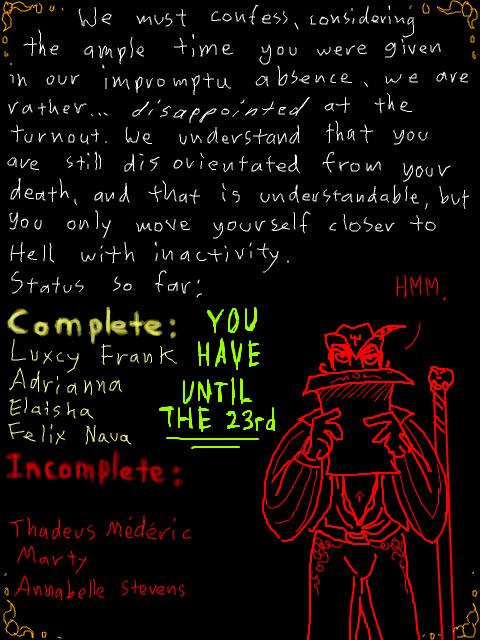 We must confess, considering
the ample time you were given
in our impromptu absence, we are
rather... disappointed at the
turnout. We understand that you
are still disorientated from your
death, and that is understandable, but
you only move yourself closer to
Hell with inactivity.
Status so far:
HMM.
Complete:
Luxcy Frank
Adrianna
Elaisha
Felix Nava
YOU
HAVE
UNTIL
THE 23rd
Incomplete:
Thadeus Médéric
Marty
Annabelle Stevens